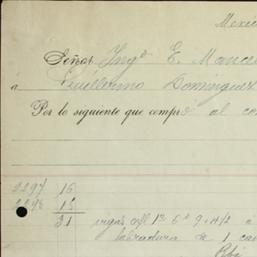 Mexic
Señor Ingº E. Mance
á Guillermo Dominguez
Por lo siguiente que compré al co
2297 16
15
31 vigas 6" 9
labradura de 1 ca